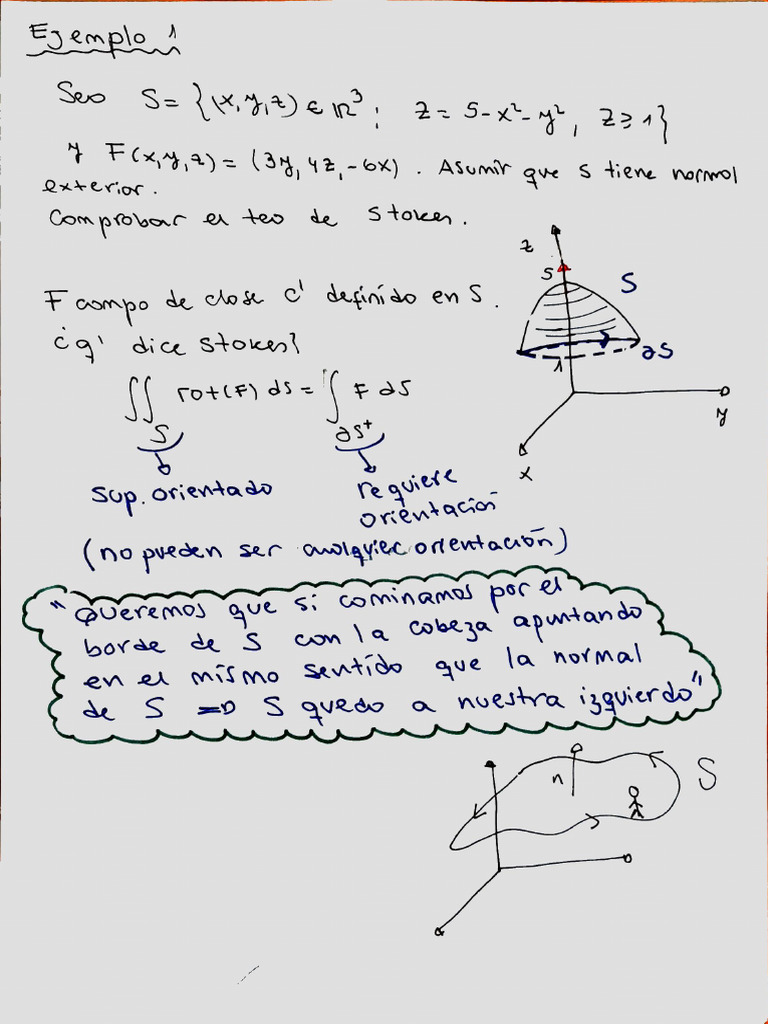 Ejemplo 1
Sea S = {(x,y,z) ∈ IR³ : z = 5-x²-y², z ≥ 1}
y F(x,y,z) = (3y, 4z, -6x). Asumir que S tiene normal
exterior.
Comprobar el teo de Stokes.
z
5
S
F campo de clase C¹ definido en S.
∂S
¿q' dice Stokes?
1
∬_S rot(F) dS = ∫_∂S⁺ F dS
y
x
sup. orientada
requiere
orientación
(no pueden ser cualquier orientación)
"Queremos que si caminamos por el
borde de S con la cabeza apuntando
en el mismo sentido que la normal
de S ⇒ S queda a nuestra izquierda"
n
S